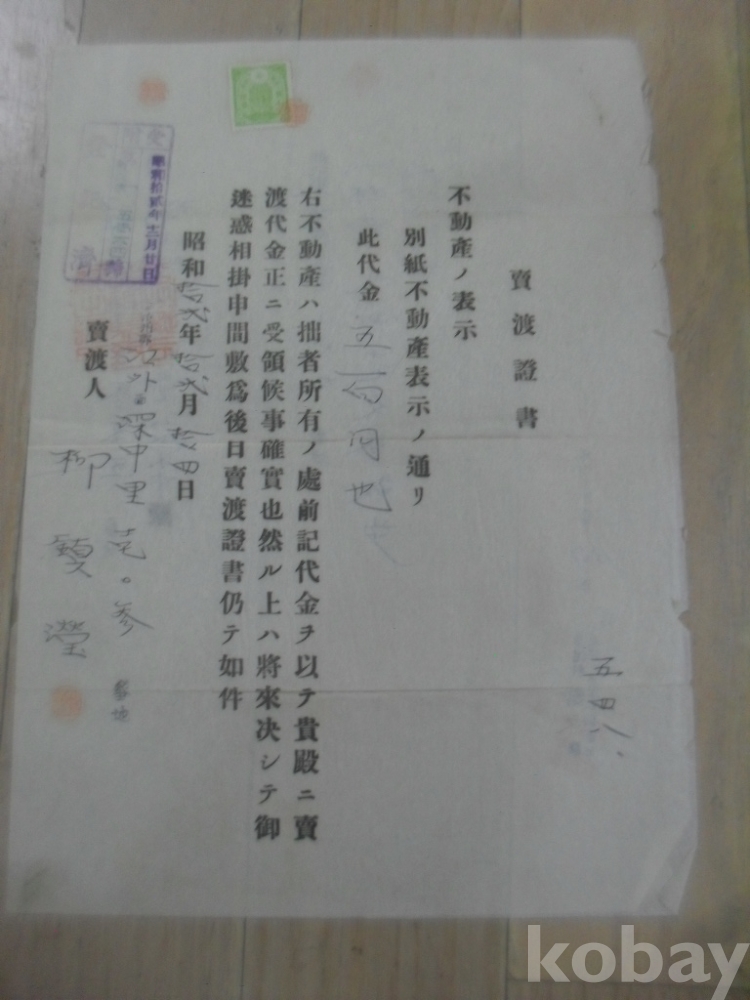 賣渡證書
不動產ノ表示
別紙不動產表示ノ通リ
此代金五百円也
右不動產ハ拙者所有ノ處前記代金ヲ以テ貴殿ニ賣
渡代金正ニ受領候事確實也然ル上ハ將來決シテ御
迷惑相掛申間敷爲後日賣渡證書仍テ如件
昭和拾貳年拾貳月拾四日
中里
番地
賣渡人 柳 瀅
五四八
kobay